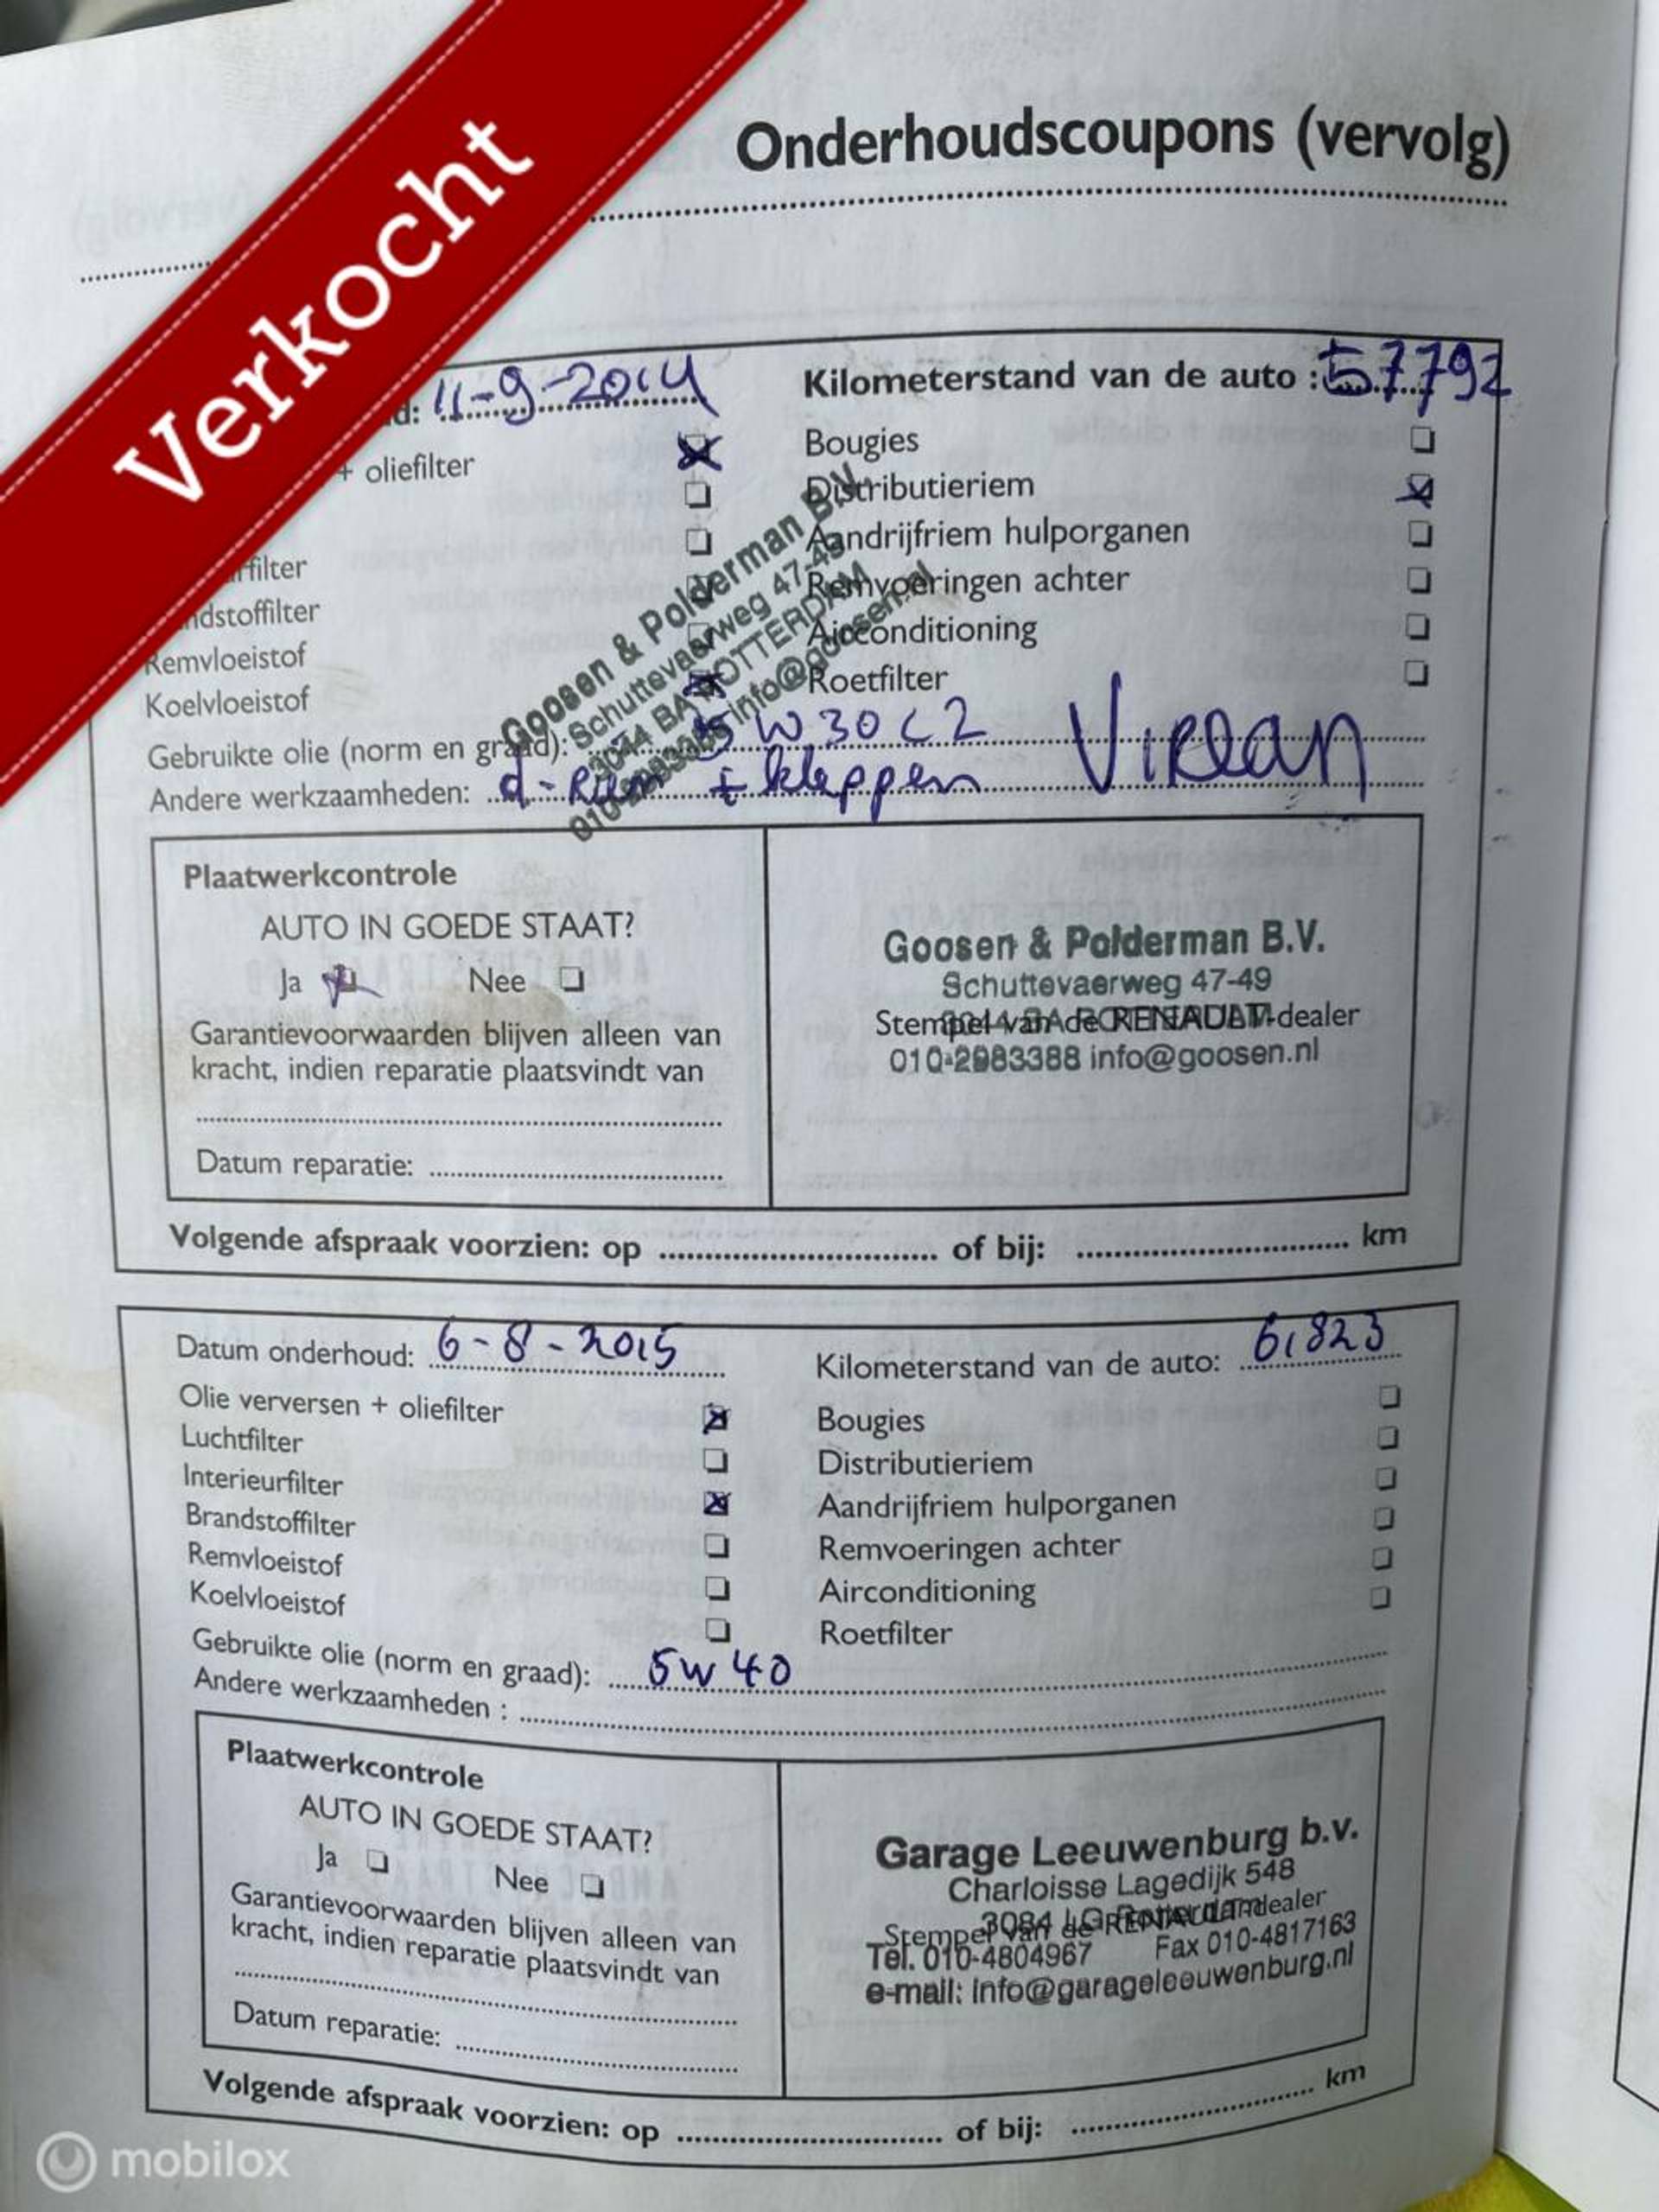 Verkocht
Onderhoudscoupons (vervolg)
d: 11-9-2014
Kilometerstand van de auto : 57792
+ oliefilter
filter
ndstoffilter
Remvloeistof
Koelvloeistof
Bougies
Distributieriem
Aandrijfriem hulporganen
Remvoeringen achter
Airconditioning
Roetfilter
Goosen & Polderman B.V.
Schuttevaerweg 47-49
3044 BA ROTTERDAM
010-2983388 info@goosen.nl
Gebruikte olie (norm en graad): 5W30 C2
Andere werkzaamheden: d-Riem + kleppen
Plaatwerkcontrole
AUTO IN GOEDE STAAT?
Ja Nee
Garantievoorwaarden blijven alleen van
kracht, indien reparatie plaatsvindt van
Datum reparatie:
Goosen & Polderman B.V.
Schuttevaerweg 47-49
Stempel van de RENAULT-dealer
010-2983388 info@goosen.nl
Volgende afspraak voorzien: op of bij: km
Datum onderhoud: 6-8-2015
Kilometerstand van de auto: 61823
Olie verversen + oliefilter
Luchtfilter
Interieurfilter
Brandstoffilter
Remvloeistof
Koelvloeistof
Bougies
Distributieriem
Aandrijfriem hulporganen
Remvoeringen achter
Airconditioning
Roetfilter
Gebruikte olie (norm en graad): 5W40
Andere werkzaamheden :
Plaatwerkcontrole
AUTO IN GOEDE STAAT?
Ja Nee
Garantievoorwaarden blijven alleen van
kracht, indien reparatie plaatsvindt van
Datum reparatie:
Garage Leeuwenburg b.v.
Charloisse Lagedijk 548
3084 LG Rotterdam
Stempel van de RENAULT-dealer
Tel. 010-4804967 Fax 010-4817163
e-mail: info@garageleeuwenburg.nl
Volgende afspraak voorzien: op of bij: km
mobilox